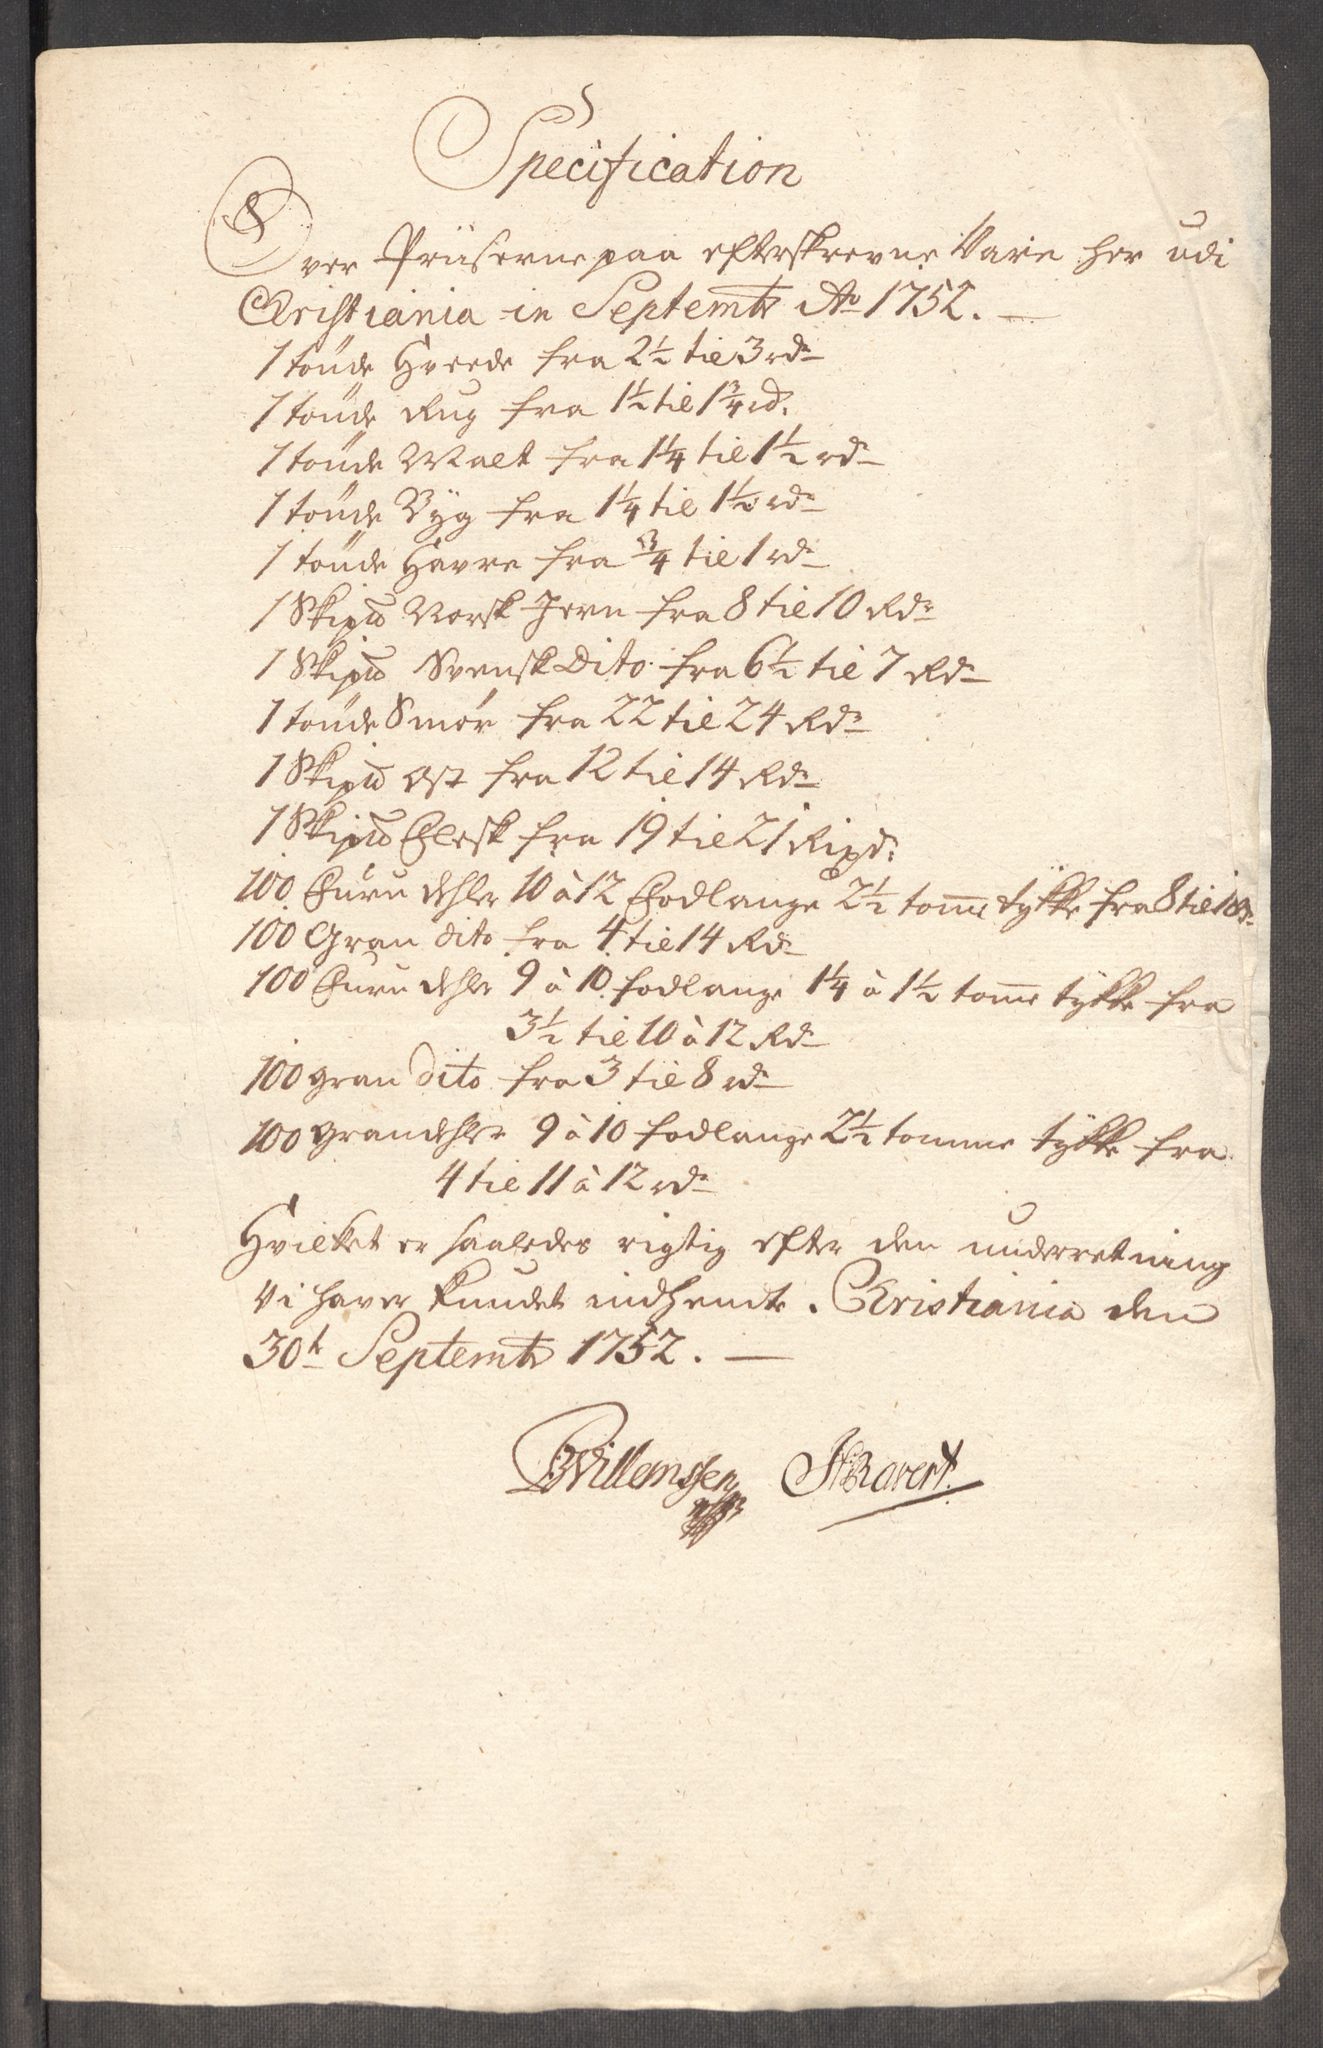 Specification
Over Priiserne paa efterskrevne Vare her udi
Christiania in Septembr Ao 1752. —
1 tønde Hvede fra 2½ til 3 rdr
1 tønde Rug fra 1½ til 1¾ rd.
1 tønde Malt fra 1¼ til 1½ rdr
1 tønde Byg fra 1¼ til 1½ rdr
1 tønde Havre fra ¾ til 1 rdr
1 Skipd Norsk Jern fra 8 til 10 Rdr
1 Skipd Svensk Dito fra 6½ til 7 Rdr
1 tønde Smør fra 22 til 24 Rdr
1 Skipd Ost fra 12 til 14 Rdr
1 Skipd Flesk fra 19 til 21 Rixdr
100 Furu dehler 10 à 12 Fod lange 2½ tomme tykke fra 8 til 18 Rdr
100 Gran dito fra 4 til 14 Rdr
100 Furu dehler 9 à 10 fod lange 1¼ à 1½ tomme tykke fra
3½ til 10 à 12 Rdr
100 gran dito fra 3 til 8 rdr
100 grandehler 9 à 10 fod lange 2½ tomme tykke fra
4 til 11 à 12 rdr
Hvilket er saaledes rigtig efter den underretning
Vi haver kundet indhente. Christiania den
30t Septembr 1752. —
BWillemssen HRavert.